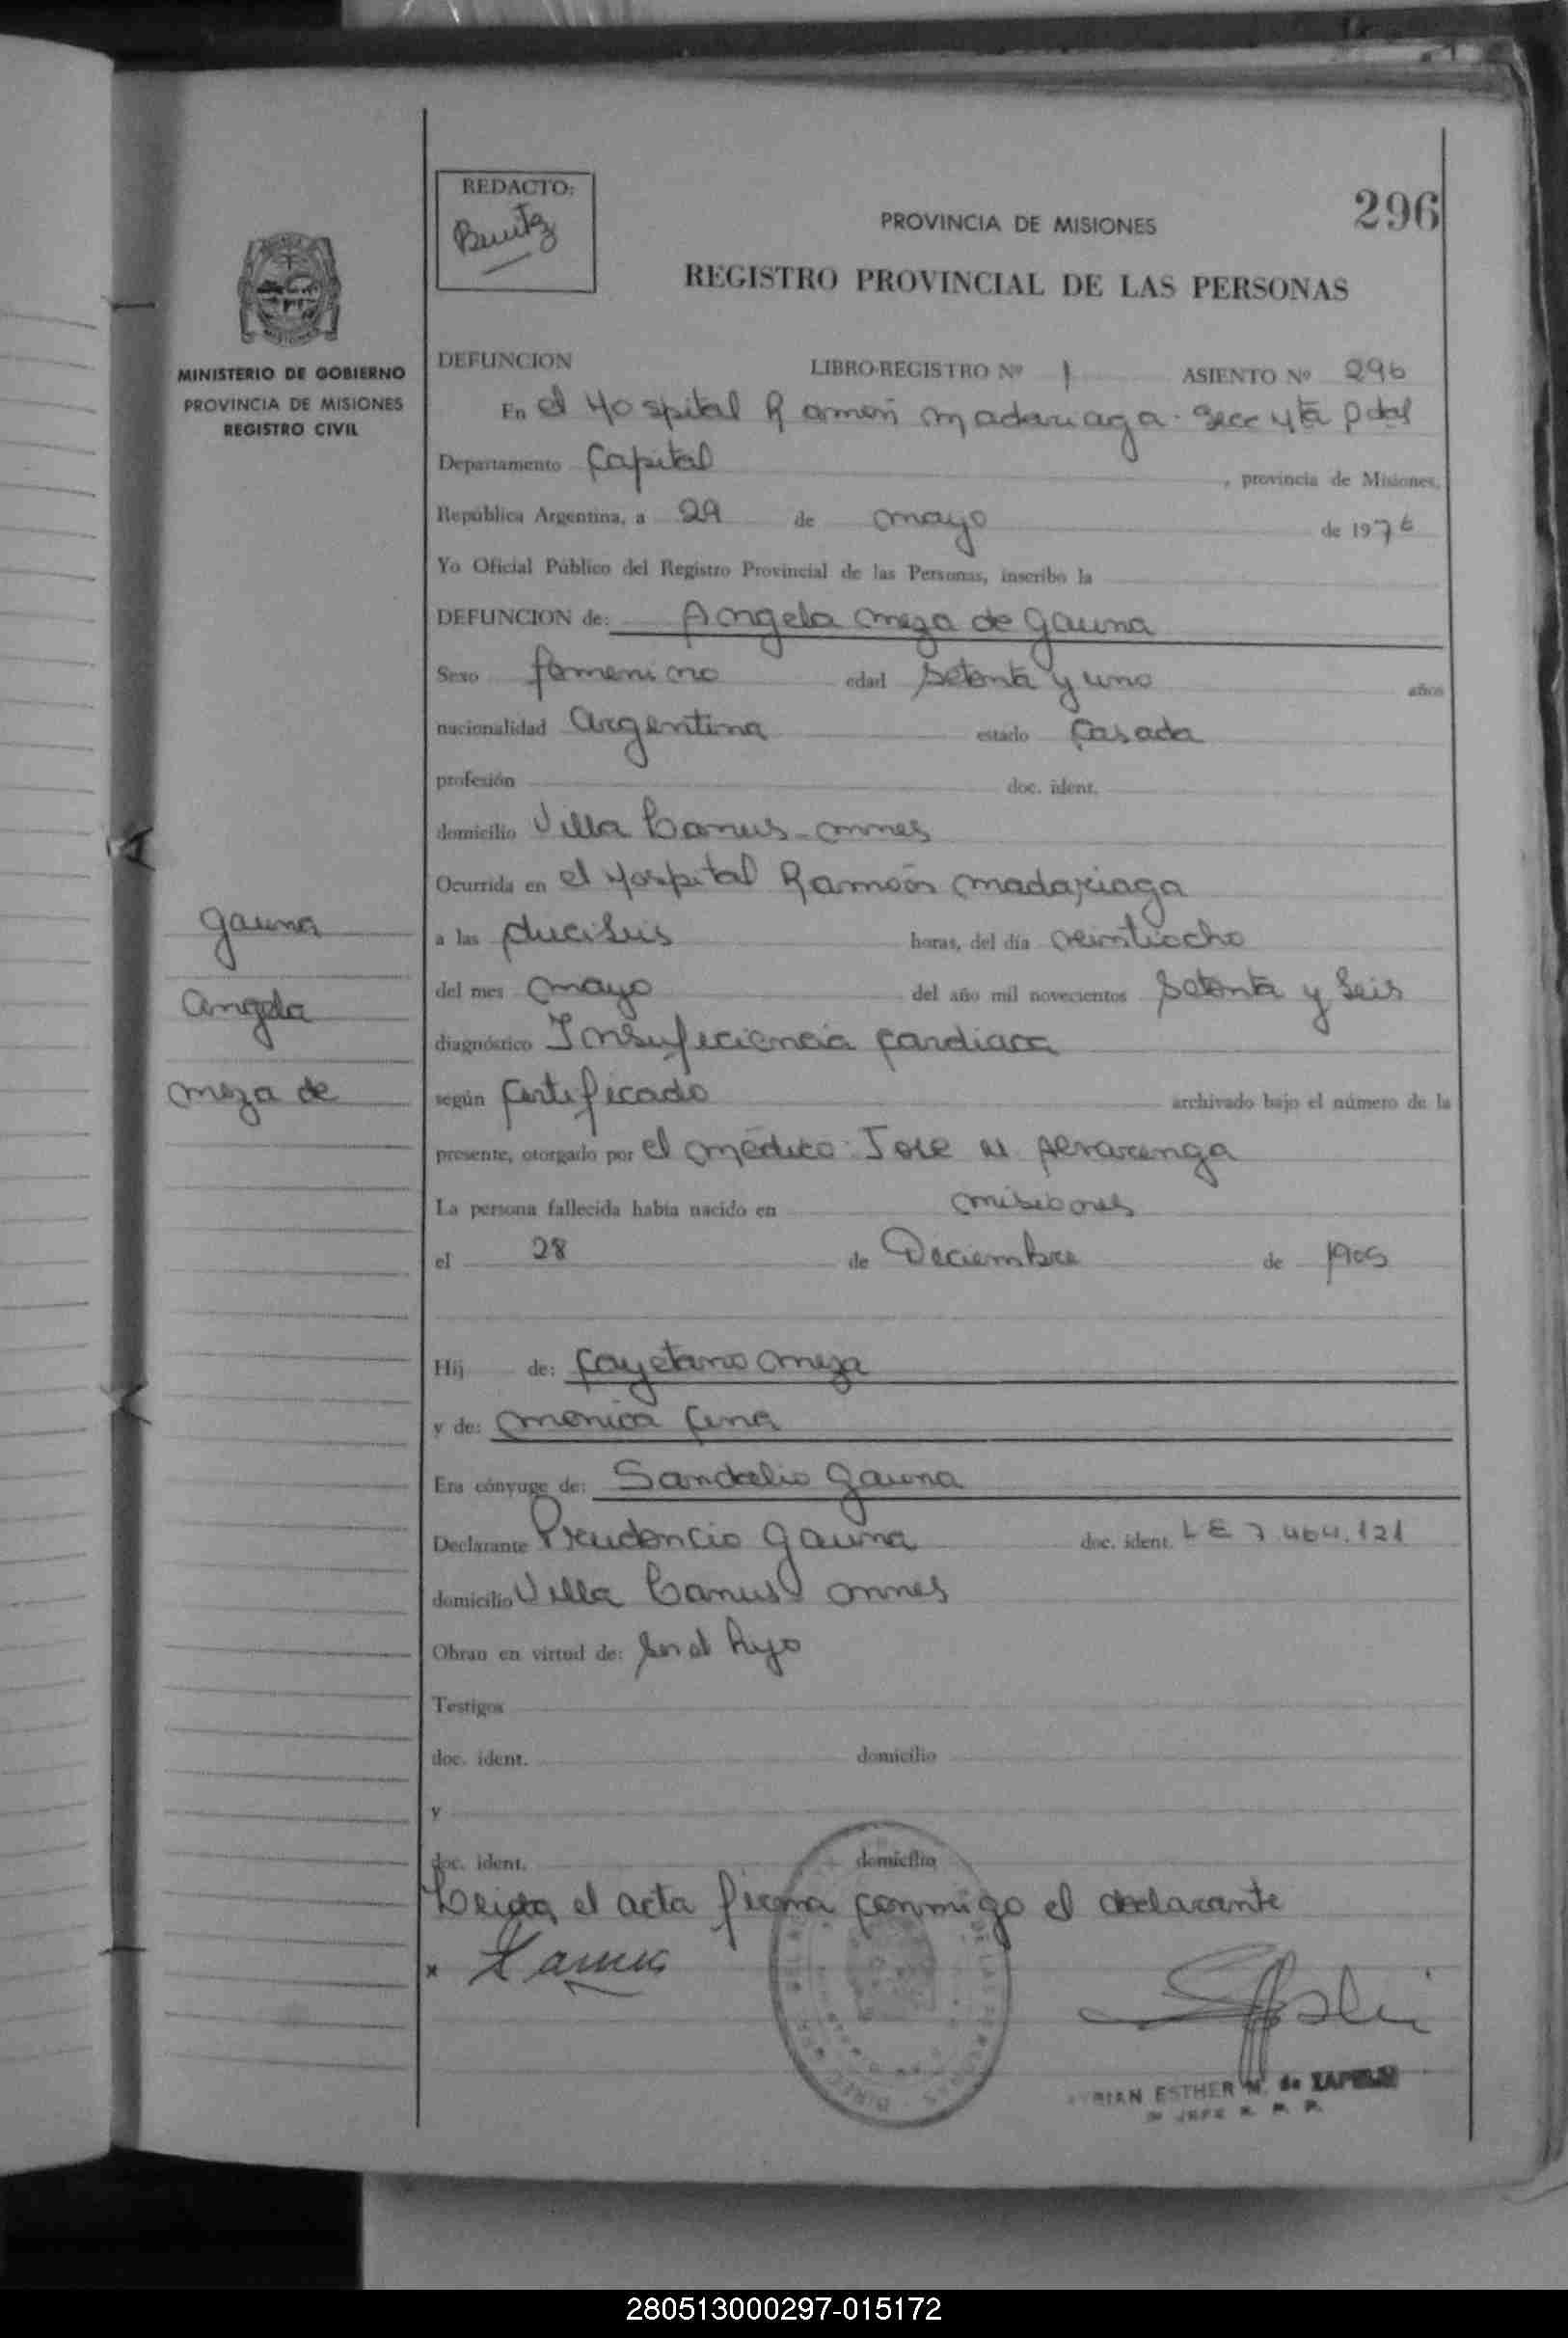 REDACTO:
Benitz
296
PROVINCIA DE MISIONES
REGISTRO PROVINCIAL DE LAS PERSONAS
MINISTERIO DE GOBIERNO
PROVINCIA DE MISIONES
REGISTRO CIVIL
DEFUNCION LIBRO-REGISTRO Nº 1 ASIENTO Nº 296
En el Hospital Ramón Madariaga. Secc 4ta Pdas
Departamento Capital, provincia de Misiones,
República Argentina, a 29 de mayo de 1976
Yo Oficial Público del Registro Provincial de las Personas, inscribo la
DEFUNCION de: Angela Meza de Gauna
Sexo femenino edad setenta y uno años
nacionalidad Argentina estado Casada
profesión doc. ident.
domicilio Villa Lanus - Mnes
Ocurrida en el Hospital Ramón Madariaga
a las dieciseis horas, del día veintiocho
del mes mayo del año mil novecientos setenta y seis
diagnóstico Insuficiencia cardiaca
según certificado archivado bajo el número de la
presente, otorgado por el médico: Jose N. Alvarenga
La persona fallecida había nacido en Misiones
el 28 de Diciembre de 1905
Hij de: Cayetano Meza
y de: Monica
Era cónyuge de: Sandalio Gauna
Declarante Prudencio Gauna doc. ident. LE 7.464.121
domicilio Villa Lanus Mnes
Obran en virtud de: Ser el hijo
Testigos
doc. ident. domicilio
y
doc. ident. domicilio
Leida el acta firma conmigo el declarante
x
Gauna
Angela
Meza de
ESTHER M. de
JEFE R. P. P.
280513000297-015172